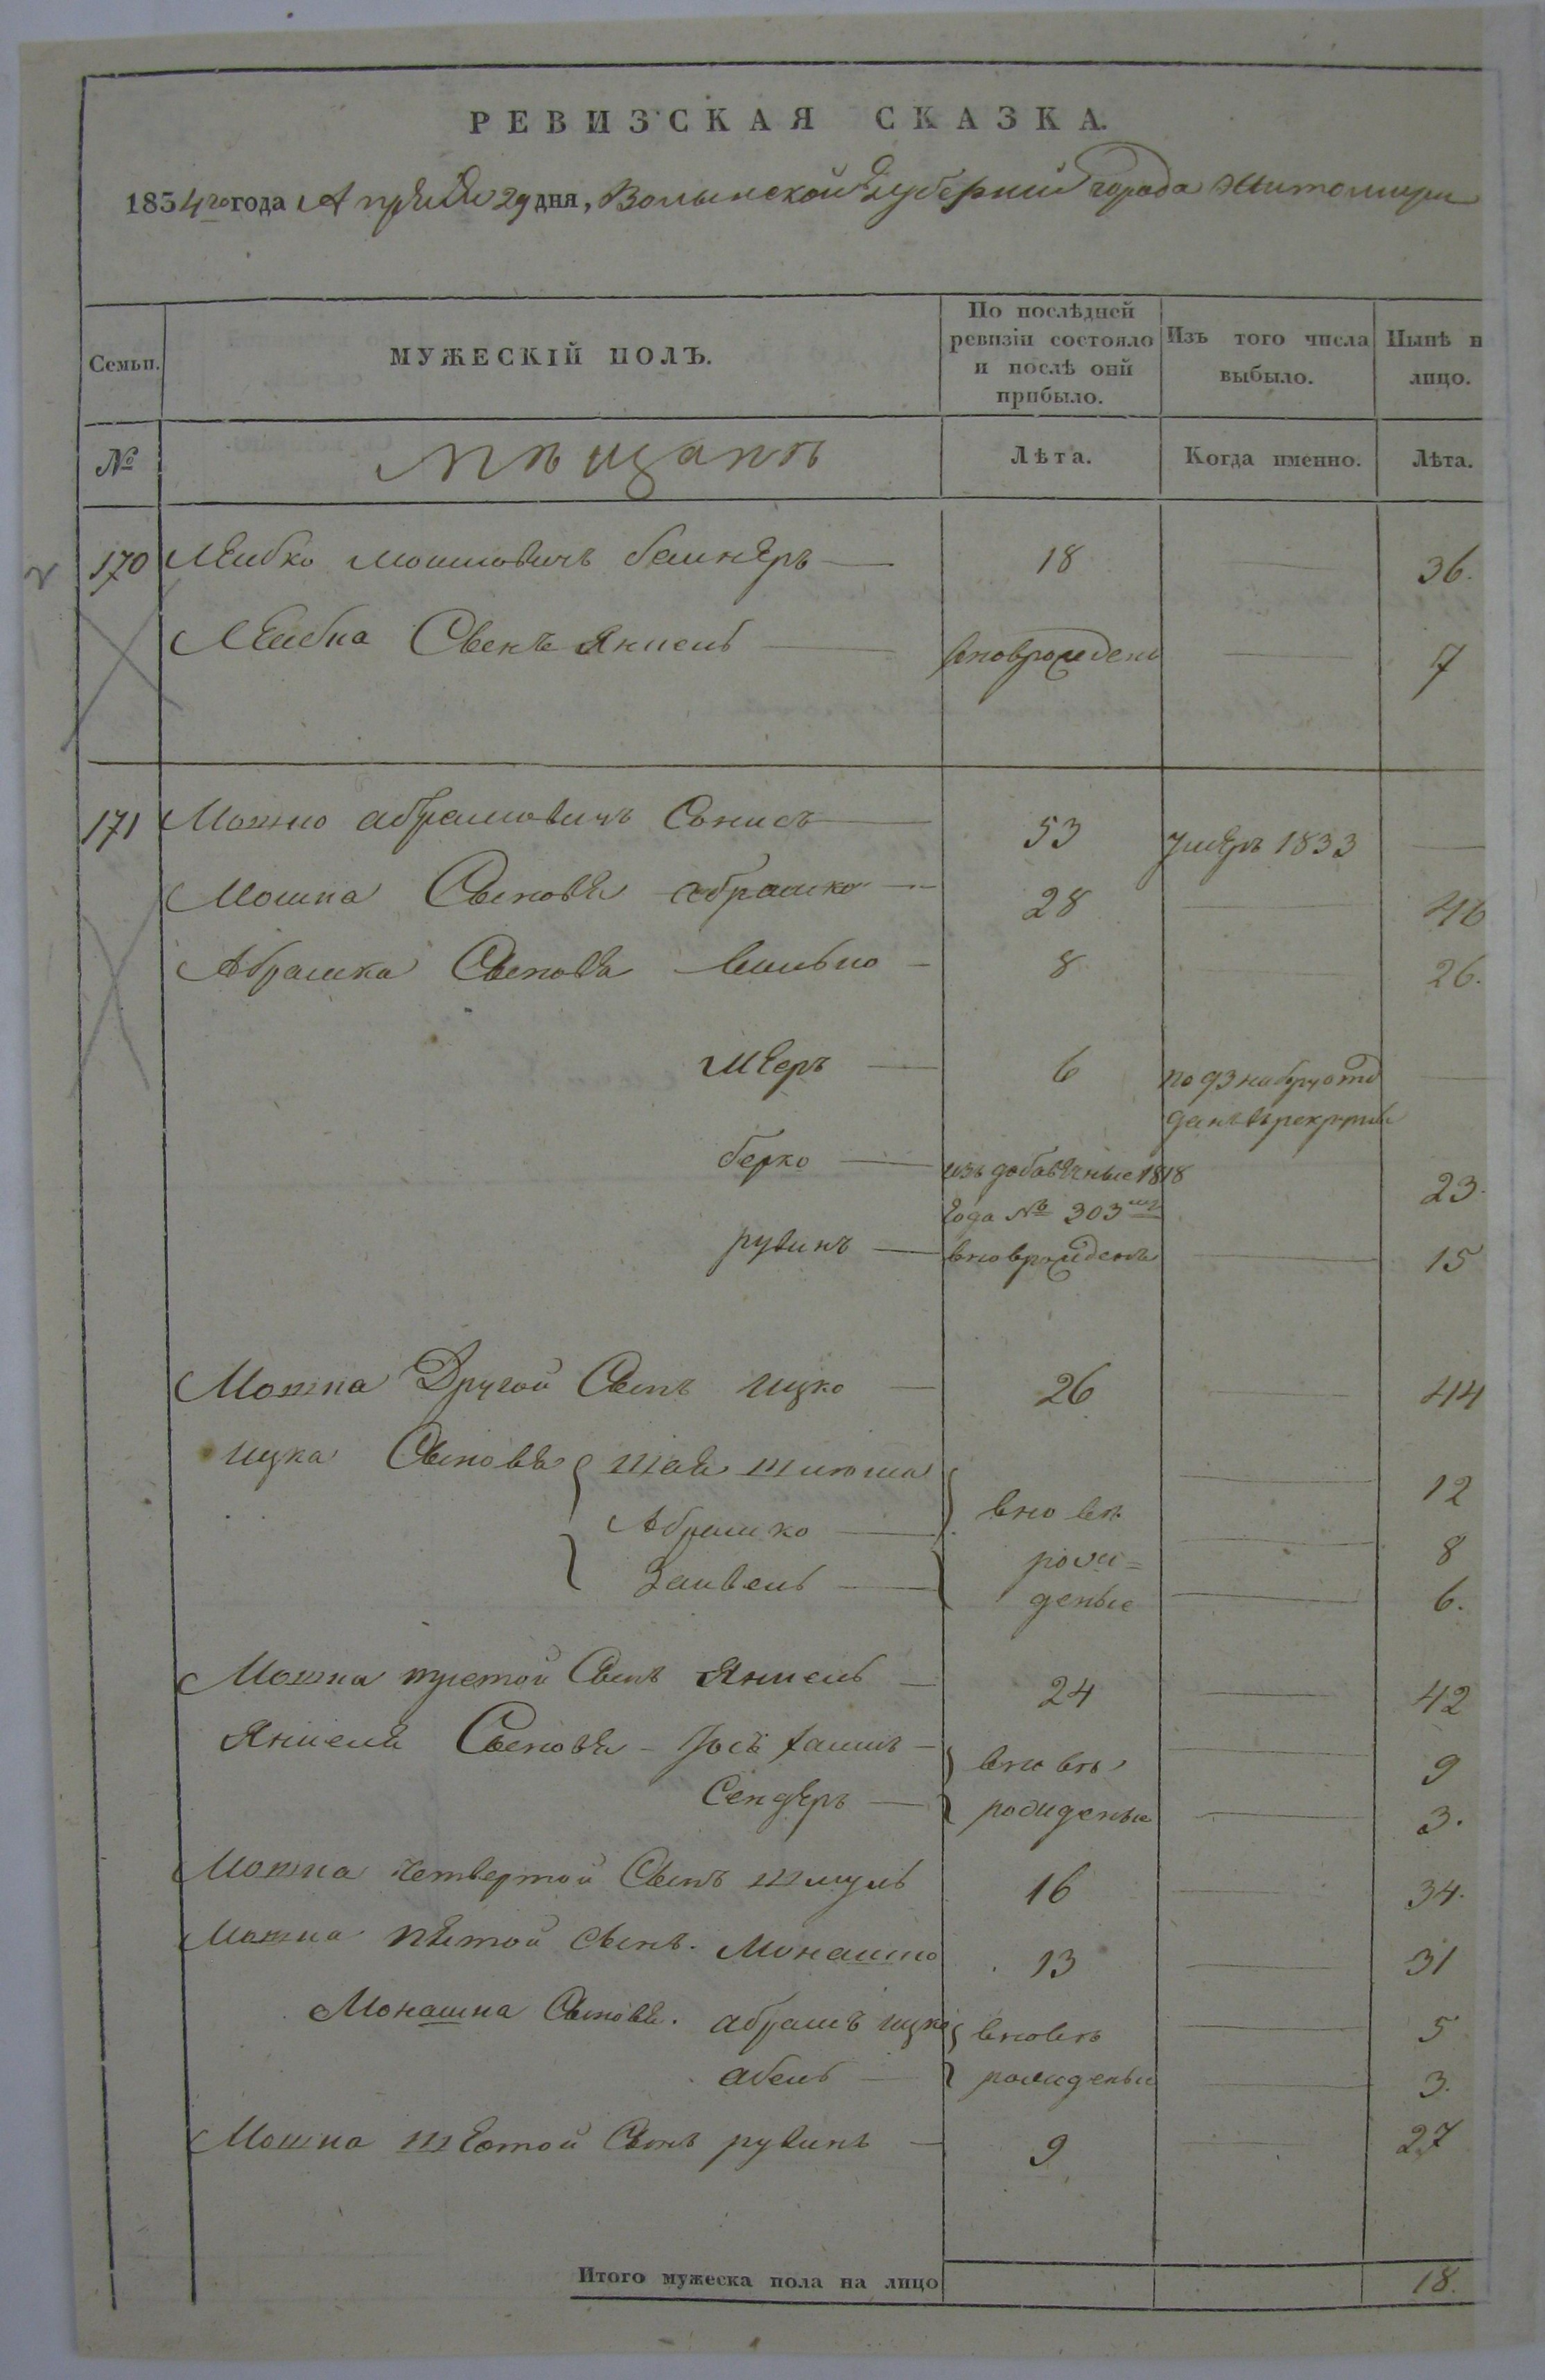 РЕВИЗСКАЯ СКАЗКА.
1834го года Апреля 29 дня, Волынской губернии города Житомира
Семьи. МУЖЕСКІЙ ПОЛЪ. По послѣдней ревизіи состояло и послѣ оній прибыло. Изъ того числа выбыло. Нынѣ н лицо.
№ мещанъ Лѣта. Когда именно. Лѣта.
170 Лейбко Мошковичъ 18 36.
Лейбка Сынъ Янкель вноврожденъ 7
171 Мошко абрамовичъ 53 умеръ 1833
Мошка Сыновя абрамко 28 46
Абрамка Сыновя 8 26.
меер 6 по 93 набору отдан в рекруты
берко из добавочные 1818 года № 303 23.
рувинъ вноврожденъ 15
Мошка Другой Сынъ ицко 26 44
ицка Сыновя шая 12
Абрамко вновь 8
Зайвель рожденые 6.
Мошка третой Сынъ Янкель 24 42
Янкеля Сыновя Иось хаимъ вновь 9
Сендеръ рожденые 3.
Мошка Четвертой Сынъ шмуль 16 34.
Мошка пятой Сынъ. Монашко 13 31
Монашка Сыновя. абрамъ ицко вновь 5
абель рожденые 3.
Мошка шестой Сынъ рувинъ 9 27
Итого мужеска пола на лицо 18.